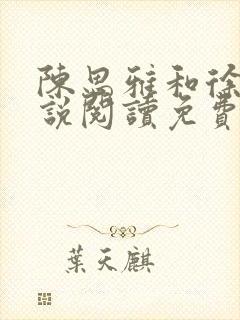 陳思雅和徐
說閱讀免費
葉天麒